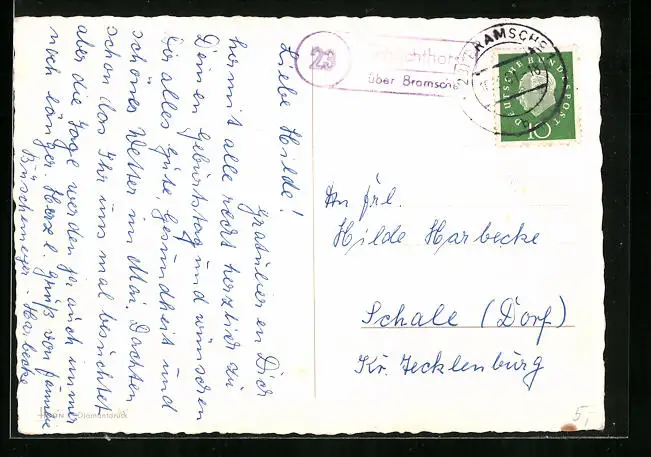 Liebe Hilde!
Gratulieren Dir
hiermit alle recht herzlich zu
Deinen Geburtstag und wünschen
Dir alles Gute, Gesundheit und
schönes Wetter im Mai. Dachten
schon das Ihr uns mal besuchtet
aber die Tage werden ja auch immer
noch länger. Herzl. Grüß von Familie
Büschemeyer - Harbecke
23
über Bramsche
BRAMSCHE
DEUTSCHE BUNDESPOST
10
An Frl.
Hilde Harbecke
Schale (Dorf)
Kr. Tecklenburg
Diamantdruck
5,-